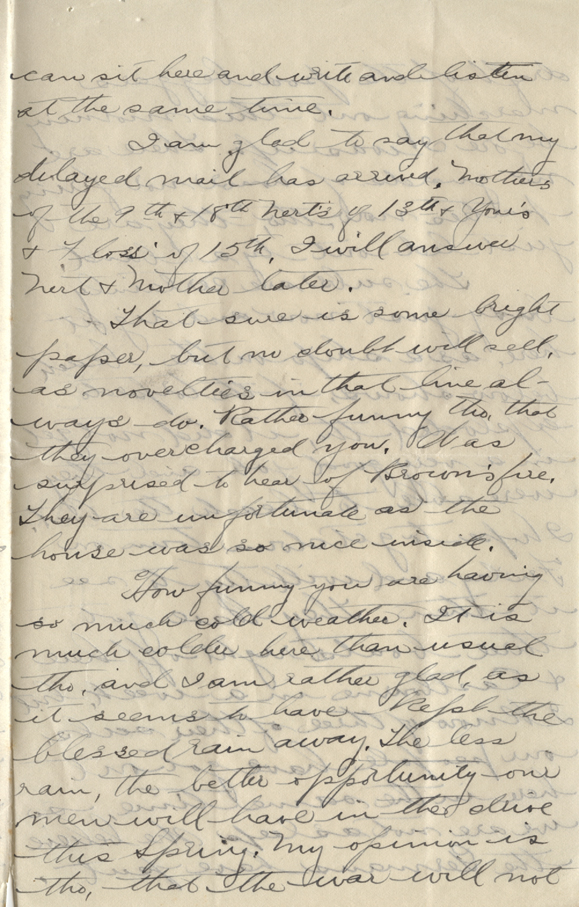 can sit here and write and listen
at the same time.
I am glad to say that my
delayed mail has arrived. Mother's
of the 9th & 18th Nert's of 13th & Your's
& Floss' of 15th. I will answer
Nert & Mother later.
That sure is some bright
paper, but no doubt will sell,
as novelties in that line al-
ways do. Rather funny tho, that
they overcharged you. Was
surprised to hear of Brown's fire.
They are unfortunate as the
house was so nice inside.
How funny you are having
so much cold weather. It is
much colder here than usual
tho, and I am rather glad, as
it seems to have kept the
blessed rain away. The less
rain, the better opportunity our
men will have in the drive
this Spring. My opinion is
tho, that the war will not